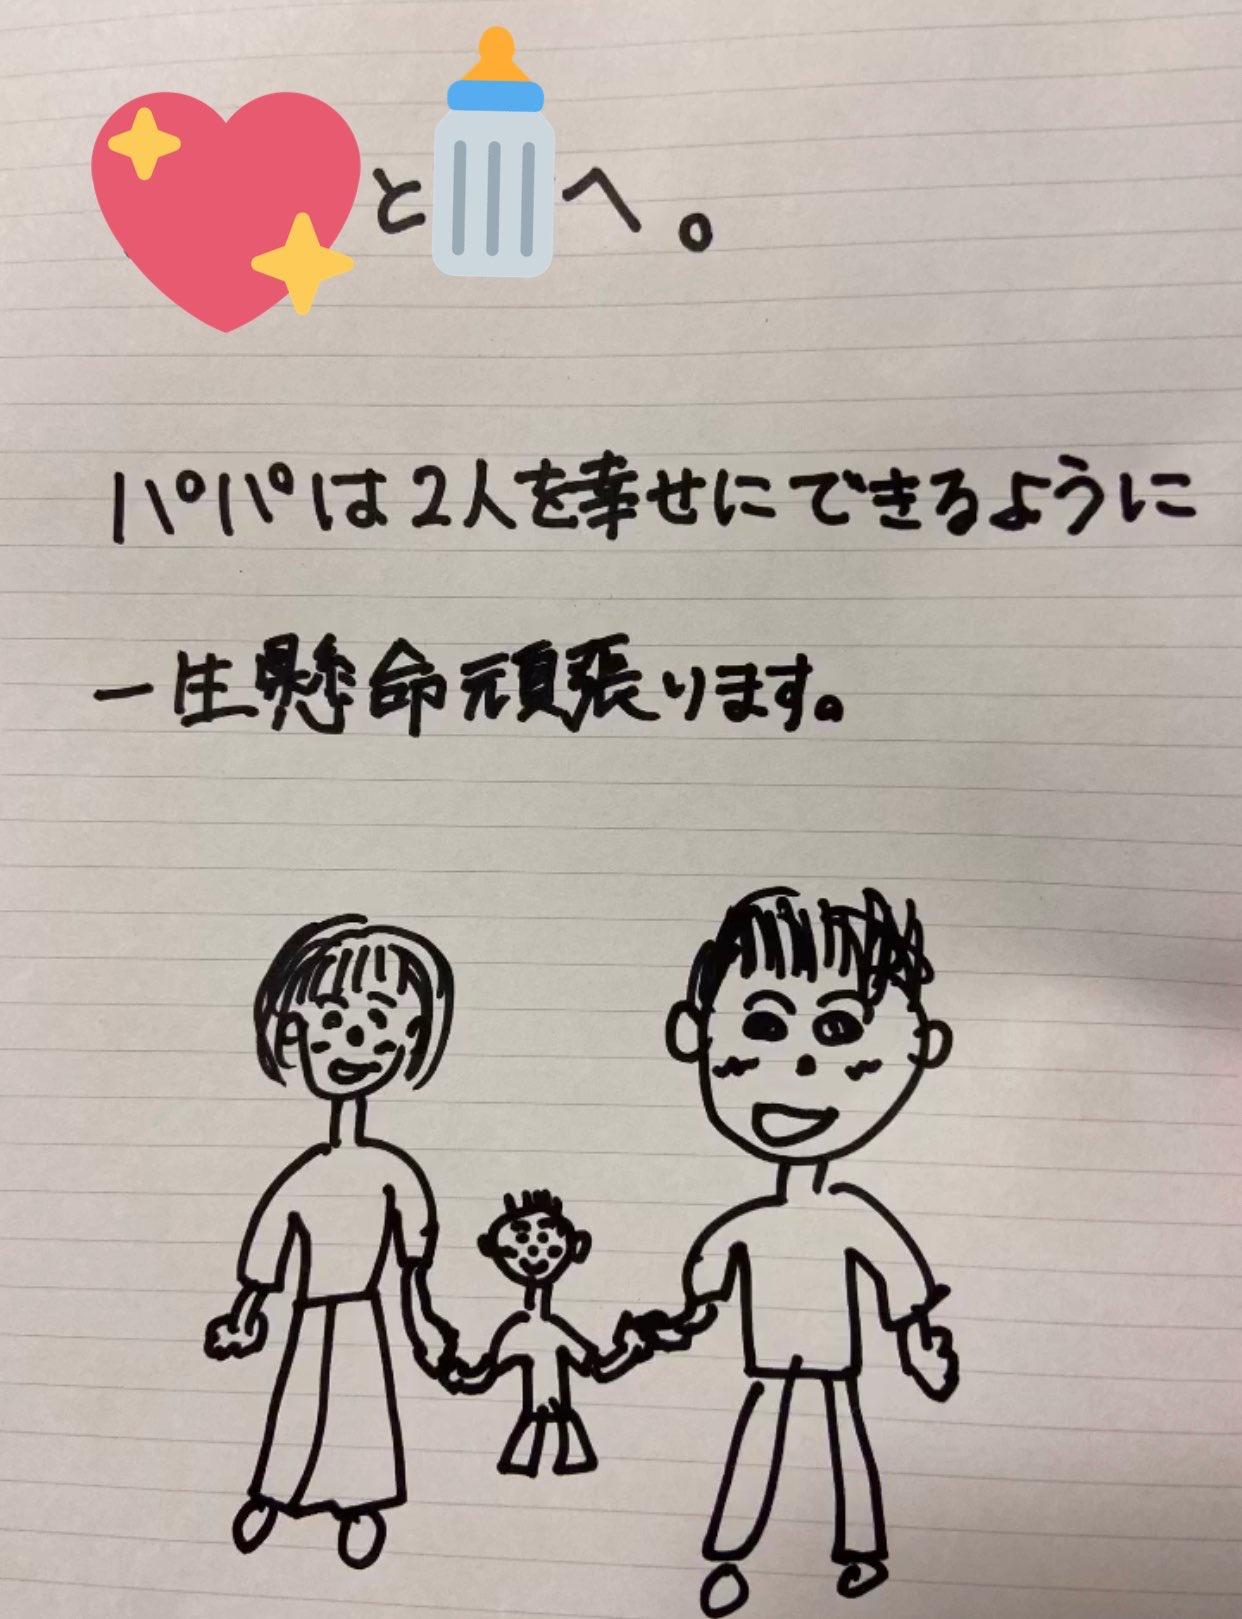 と へ。
パパは2人を幸せにできるように
一生懸命頑張ります。